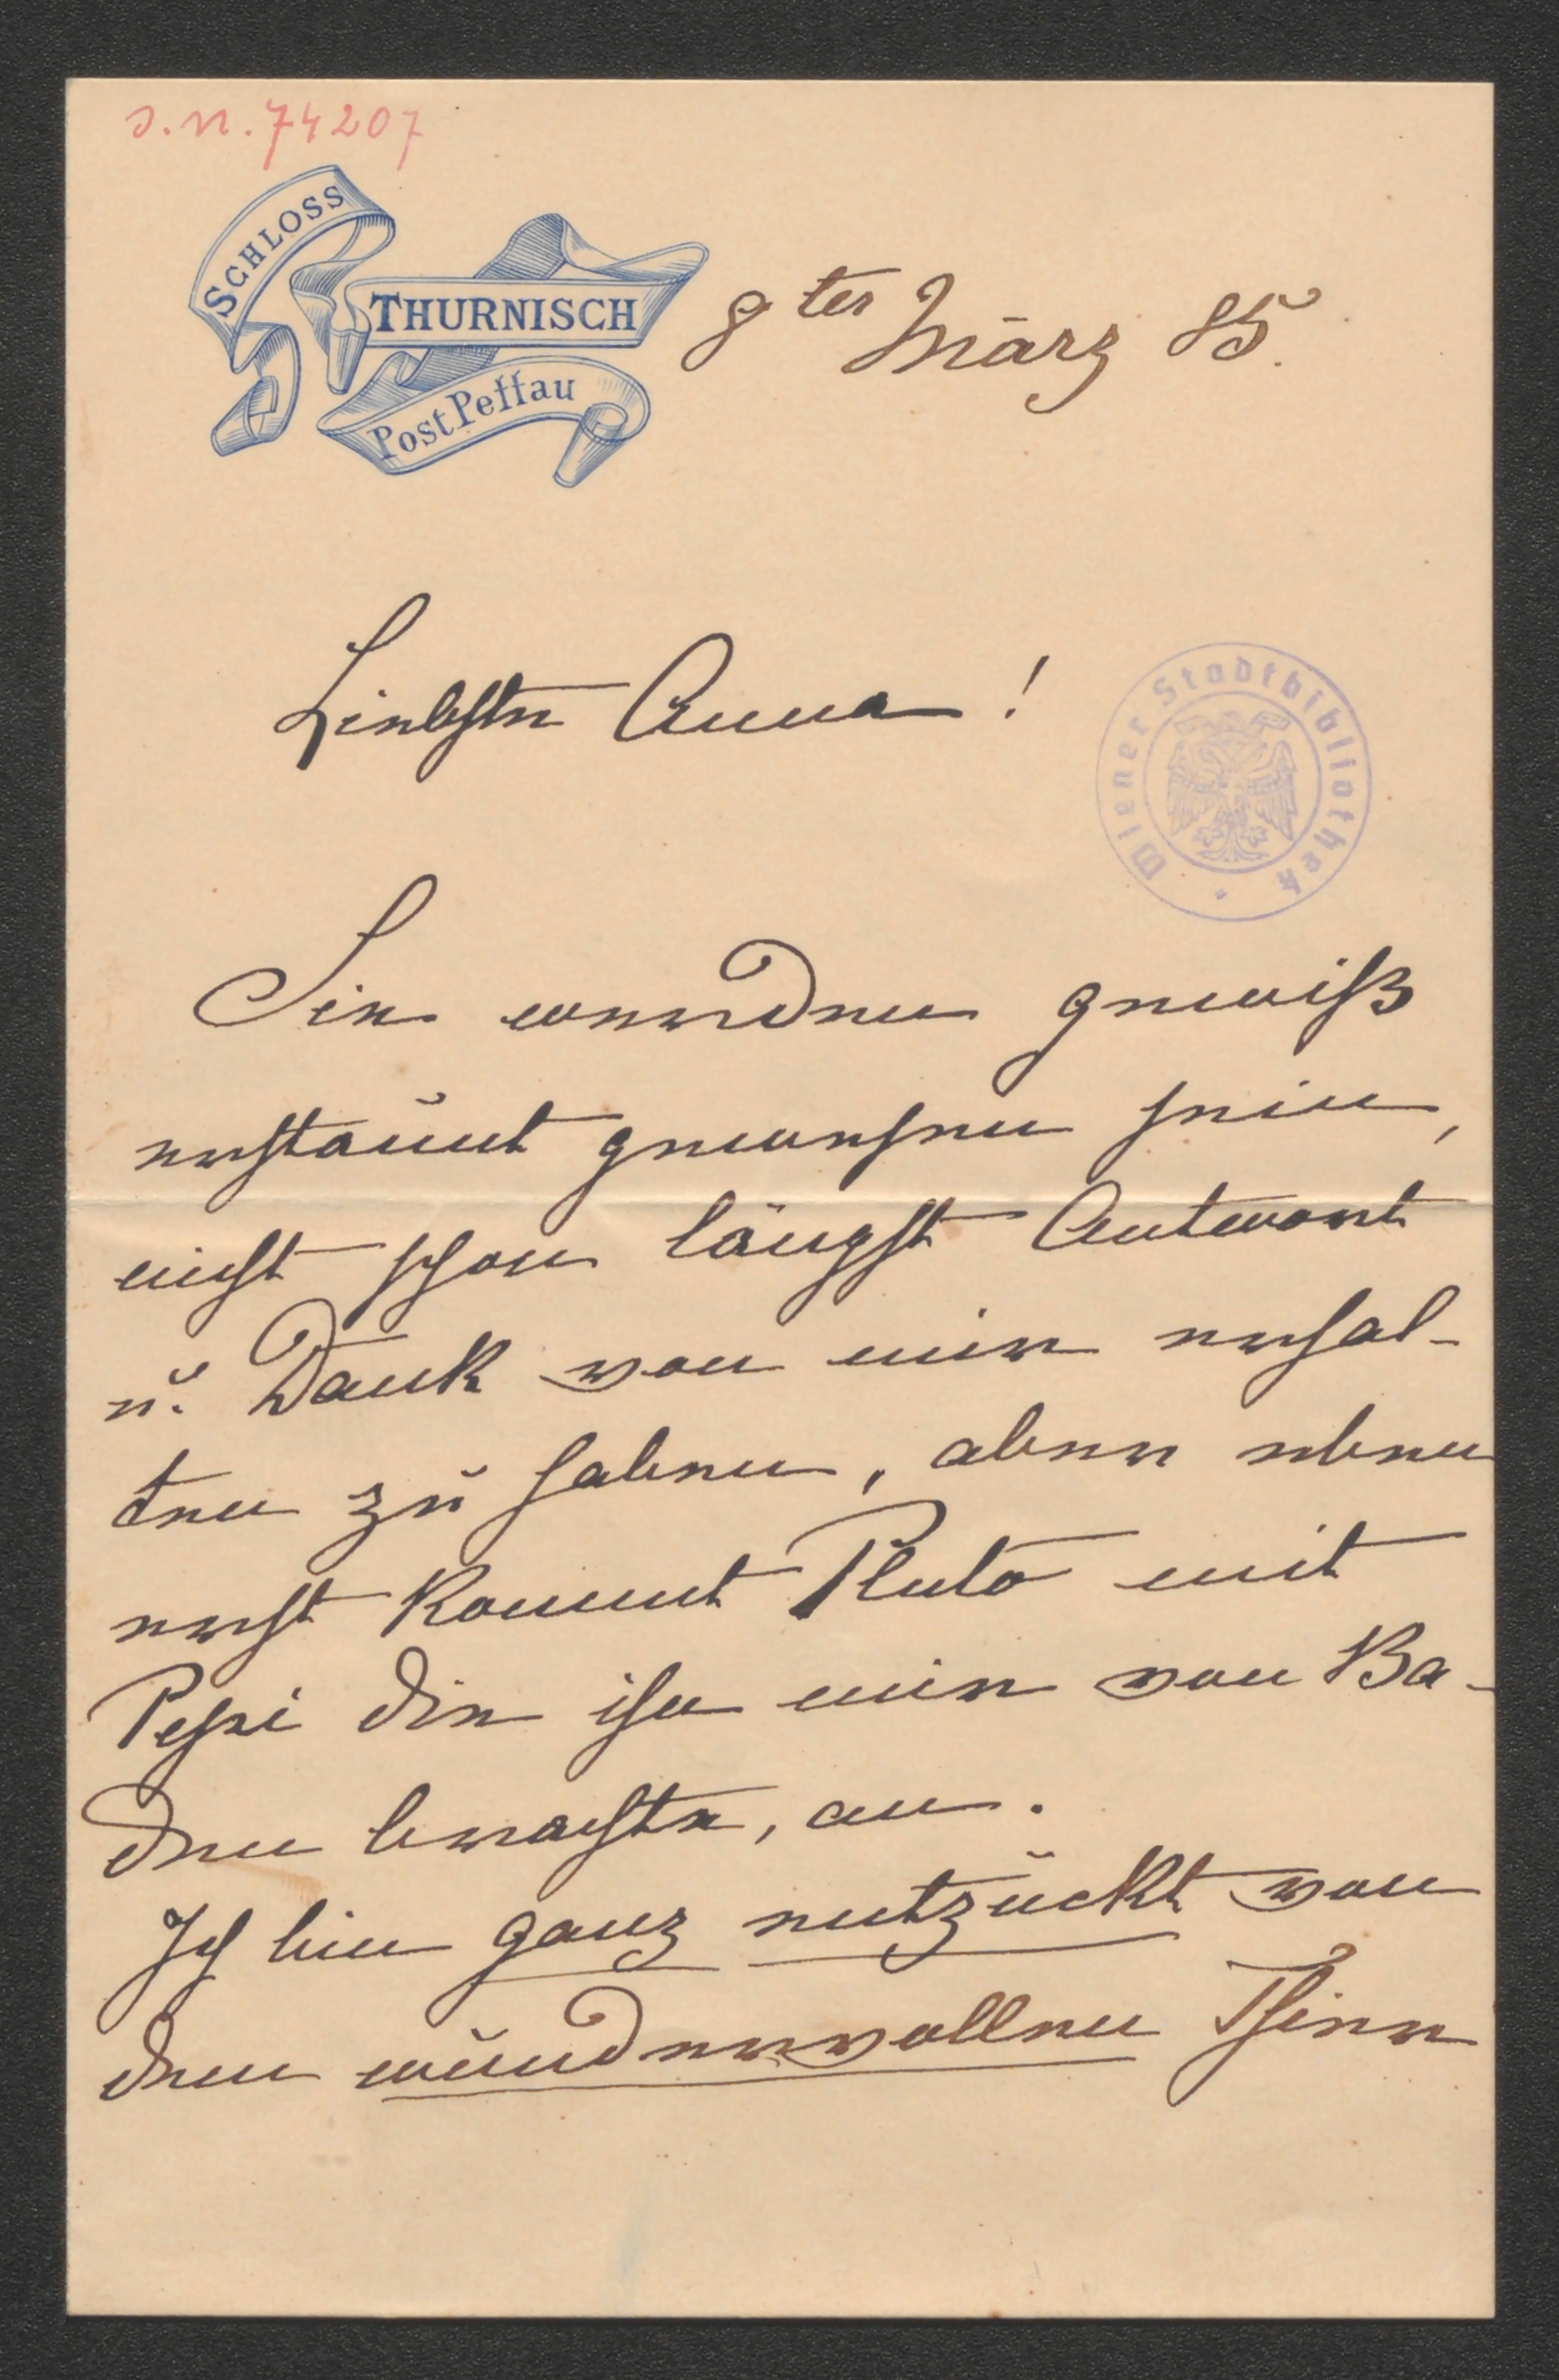 J. N. 74207
SCHLOSS
THURNISCH
Post Pettau
8ter März 85.
Liebste Anna!
Wiener Stadtbibliothek
Sie werden gewiß
erstaunt gewesen sein,
nicht schon längst Antwort
u. Dank von mir erhal-
ten zu haben, aber eben
erst kommt Pluto mit
Pepi die ihn mir von Ba-
den brachte, an.
Ich bin ganz entzückt von
dem wundervollen Thier